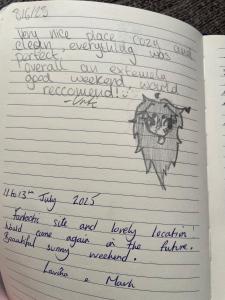 8/6/25
Very nice place cozy and
clean, everything was
perfect,
overall an extemely
good weekend would
reccomend!
11 to 13th July 2025
Fantastic site and lovely location!
Would come again in the future.
Beautiful sunny weekend.
& Mark